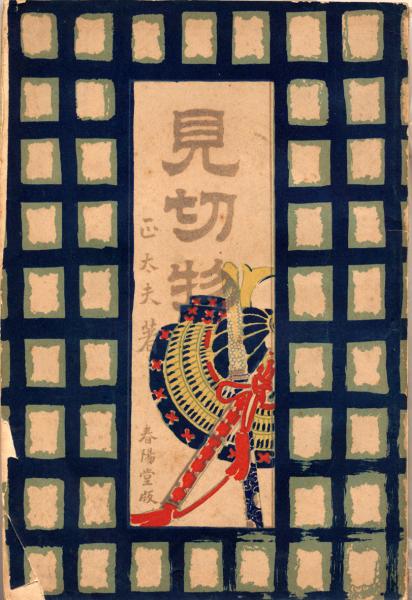 見切物
正太夫著
春陽堂版